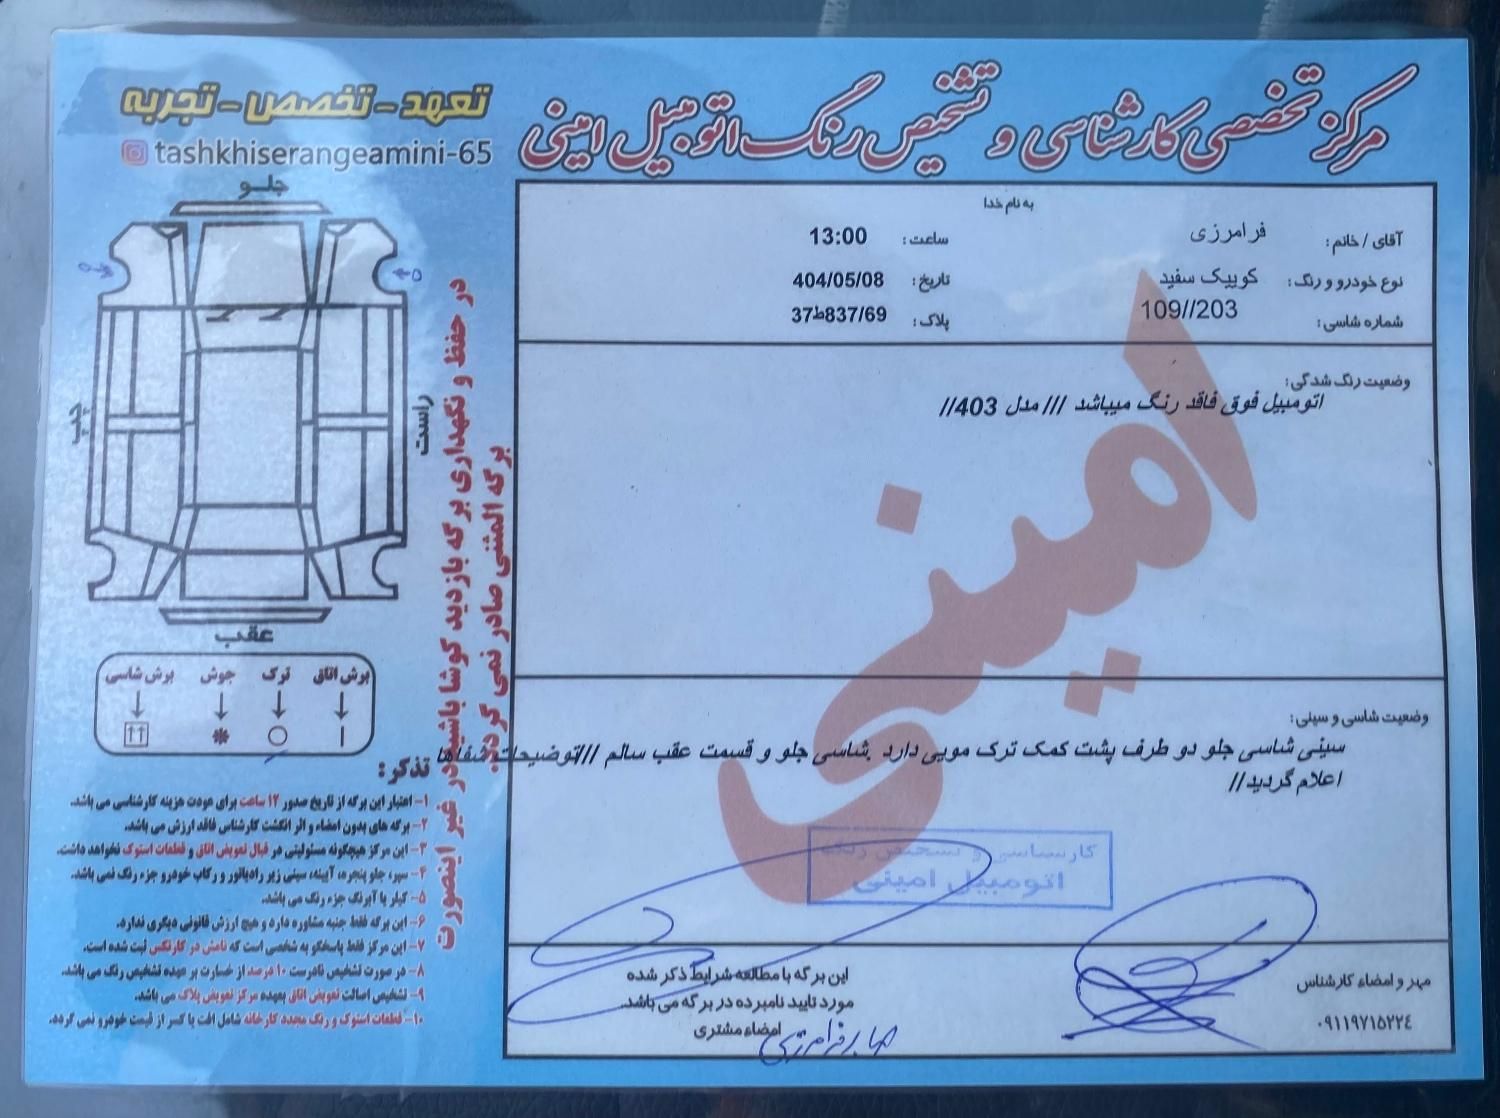 مرکز تخصصی کارشناسی و تشخیص رنگ اتومبیل امینی
تعهد - تخصص - تجربه
tashkhiserangeamini-65
به نام خدا
آقای / خانم: فرامرزی
ساعت: 13:00
نوع خودرو و رنگ: کوییک سفید
تاریخ: 404/05/08
شماره شاسی: 109//203
پلاک: 37ط837/69
وضعیت رنگ شدگی:
اتومبیل فوق فاقد رنگ میباشد /// مدل 403//
امینی
وضعیت شاسی و سینی:
سینی شاسی جلو دو طرف پشت کمک ترک مویی دارد .شاسی جلو و قسمت عقب سالم ///توضیحات شفاها
اعلام گردید//
کارشناسی و تشخیص رنگ
اتومبیل امینی
مهر و امضاء کارشناس
۰۹۱۱۹۷۱۵۲۲۴
این برگه با مطالعه شرایط ذکر شده
مورد تایید نامبرده در برگه می باشد.
امضاء مشتری
فرامرزی
جلو
چپ
راست
عقب
برش اتاق
ترک
جوش
برش شاسی
در حفظ و نگهداری برگه بازدید کوشا باشید در غیر اینصورت
برگه المثنی صادر نمی گردد.
تذکر:
۱- اعتبار این برگه از تاریخ صدور ۱۲ ساعت برای عودت هزینه کارشناسی می باشد.
۲- برگه های بدون امضاء و اثر انگشت کارشناس فاقد ارزش می باشد.
۳- این مرکز هیچگونه مسئولیتی در قبال تعویض اتاق و قطعات استوک نخواهد داشت.
۴- سپر، جلو پنجره، آیینه، سینی زیر رادیاتور و رکاب خودرو جزء رنگ نمی باشد.
۵- کیلر یا آبرنگ جزء رنگ می باشد.
۶- این برگه فقط جنبه مشاوره دارد و هیچ ارزش قانونی دیگری ندارد.
۷- این مرکز فقط پاسخگو به شخصی است که نامش در کارتکس ثبت شده است.
۸- در صورت تشخیص نادرست ۱۰ درصد از خسارت بر عهده تشخیص رنگ می باشد.
۹- تشخیص اصالت تعویض اتاق بعهده مرکز تعویض پلاک می باشد.
۱۰- قطعات استوک و رنگ مجدد کارخانه شامل افت یا کسر از قیمت خودرو نمی گردد.